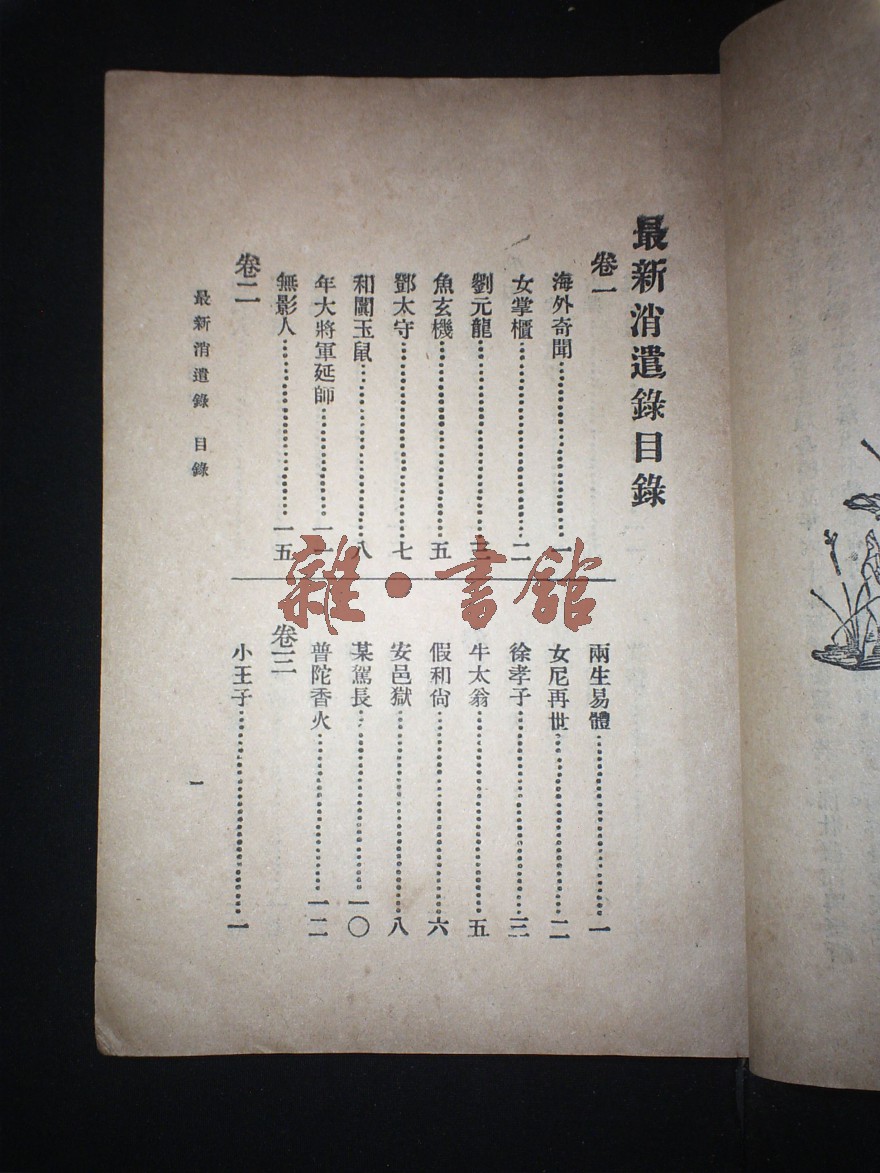 最新消遣錄目錄
卷一
海外奇聞……一
女掌櫃……二
劉元龍……三
魚玄機……五
鄧太守……七
和闐玉鼠……八
年大將軍延師……一一
無影人……一五
卷二
兩生易體……一
女尼再世……二
徐孝子……三
牛太翁……五
假和尙……六
安邑獄……八
某駕長……一〇
普陀香火……一二
卷三
小王子……一
最新消遣錄 目錄
一
雜·書館